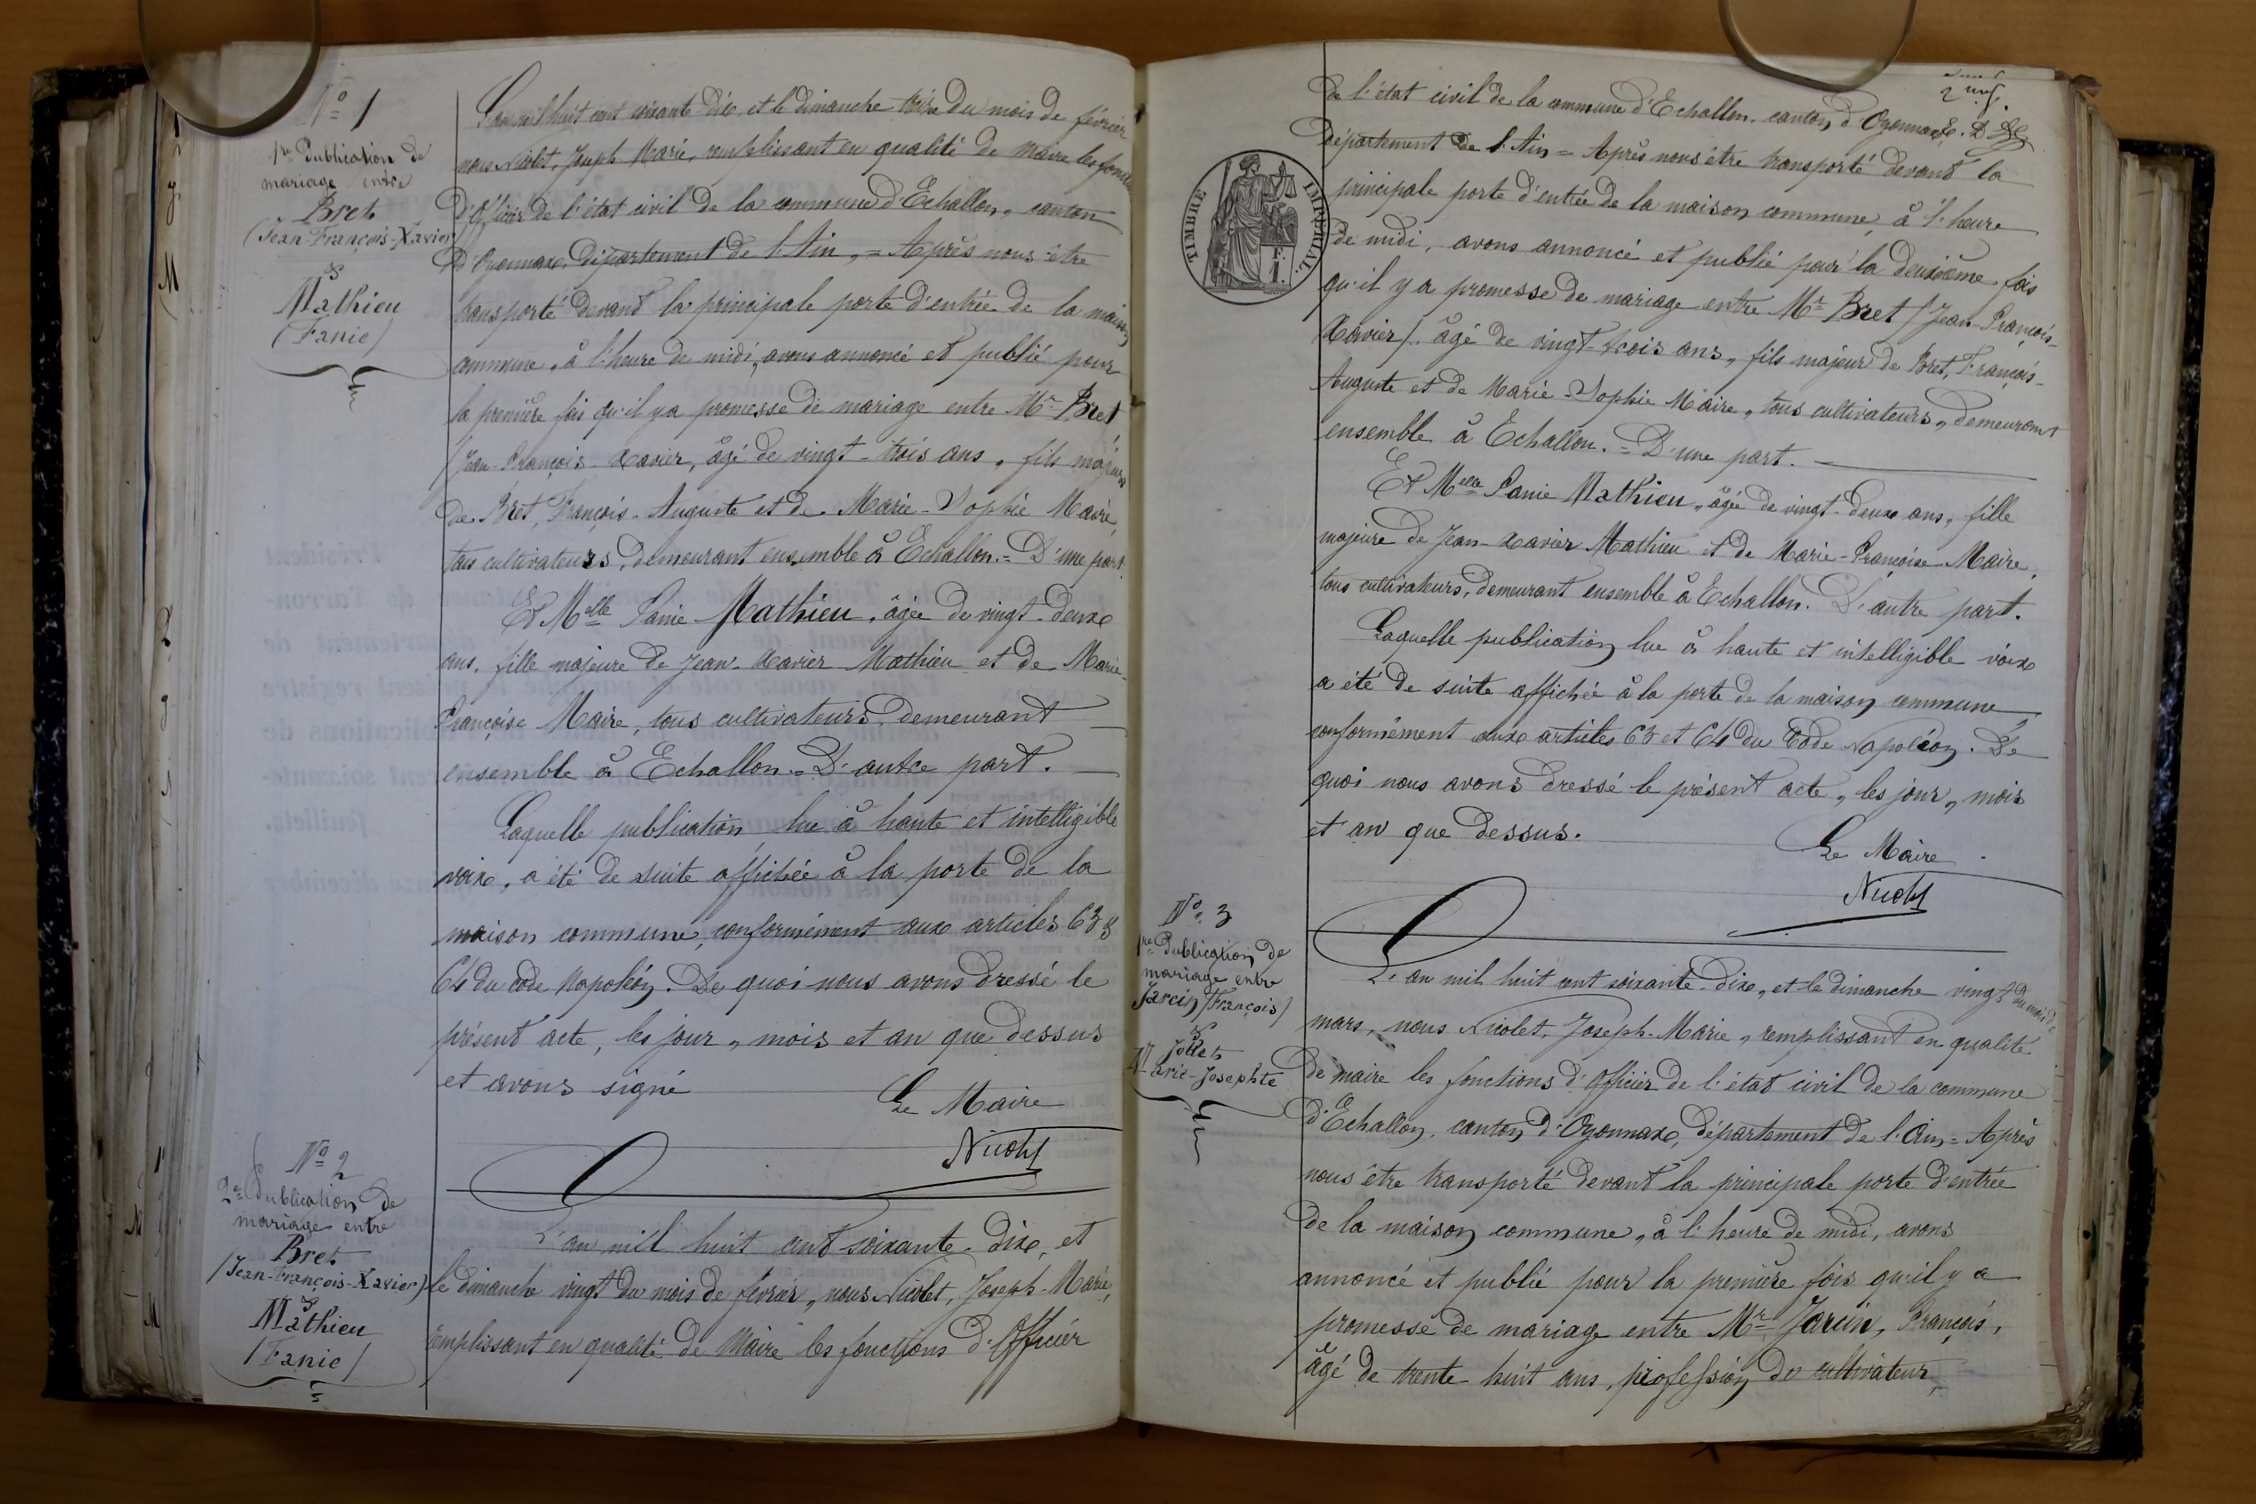 Nº 1
1re Publication de
mariage entre
Bret
(Jean-François-Xavier)
&
Mathieu
(Fanie)
L'an mil huit cent soixante dix, et le dimanche treize du mois de février
nous Nicolet, Joseph Marie, remplissant en qualité de maire les fonctions
d'Officier de l'état civil de la commune d'Echallon, canton
d'Oyonnax, département de l'Ain, = Après nous être
transporté devant la principale porte d'entrée de la maison
commune, à l'heure de midi, avons annoncé et publié pour
la première fois qu'il y a promesse de mariage entre Mr Bret
(Jean-François-Xavier, âgé de vingt-trois ans, fils majeur
de Bret, François-Auguste et de Marie-Sophie Maire,
tous cultivateurs, demeurant ensemble à Echallon. = D'une part.
Et Melle Fanie Mathieu, âgée de vingt-deux
ans, fille majeure de Jean-Xavier Mathieu et de Marie-
Françoise Maire, tous cultivateurs, demeurant
ensemble à Echallon = D'autre part.
Laquelle publication, lue à haute et intelligible
voix, a été de suite affichée à la porte de la
maison commune, conformément aux articles 63 &
64 du Code Napoléon. De quoi nous avons dressé le
présent acte, les jour, mois et an que dessus
et avons signé
Le Maire
Nicolet
Nº 2
2e Publication de
mariage entre
Bret
(Jean-François-Xavier)
&
Mathieu
(Fanie)
L'an mil huit cent soixante-dix, et
le dimanche vingt du mois de février, nous Nicolet, Joseph-Marie,
remplissant en qualité de Maire les fonctions d'Officier
de l'état civil de la commune d'Echallon, canton d'Oyonnax,
département de l'Ain = Après nous être transporté devant la
principale porte d'entrée de la maison commune, à l'heure
de midi, avons annoncé et publié pour la deuxième fois
qu'il y a promesse de mariage entre Mr Bret (Jean-François-
Xavier), âgé de vingt-trois ans, fils majeur de Bret, François-
Auguste et de Marie-Sophie Maire, tous cultivateurs, demeurant
ensemble à Echallon. = D'une part.
Et Melle Fanie Mathieu, âgée de vingt-deux ans, fille
majeure de Jean-Xavier Mathieu et de Marie-Françoise Maire,
tous cultivateurs, demeurant ensemble à Echallon. D'autre part.
Laquelle publication lue à haute et intelligible voix
a été de suite affichée à la porte de la maison commune
conformément aux articles 63 et 64 du Code Napoléon. De
quoi nous avons dressé le présent acte, les jour, mois
et an que dessus.
Le Maire
Nicolet
TIMBRE IMPÉRIAL.
Nº 3
1re Publication de
mariage entre
Jarcin (François)
&
Jollet
Marie-Josephte
L'an mil huit cent soixante-dix, et le dimanche vingt du mois de
mars, nous Nicolet, Joseph-Marie, remplissant en qualité
de maire les fonctions d'Officier de l'état civil de la commune
d'Echallon, canton d'Oyonnax, département de l'Ain = Après
nous être transporté devant la principale porte d'entrée
de la maison commune, à l'heure de midi, avons
annoncé et publié pour la première fois qu'il y a
promesse de mariage entre Mr Jarcin, François,
âgé de trente-huit ans, profession de cultivateur,